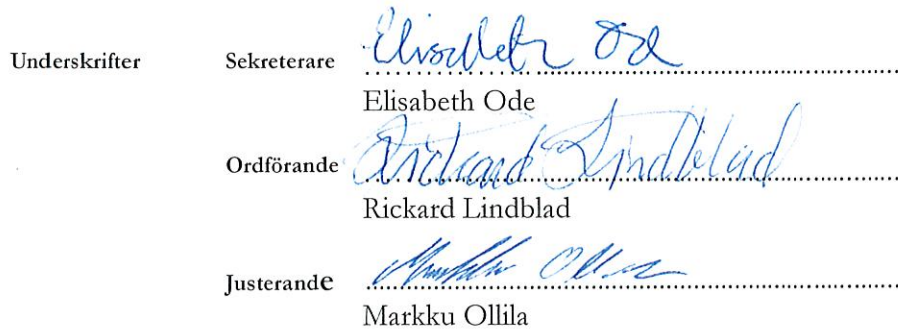 Underskrifter Sekreterare Elisabeth Ode
Elisabeth Ode
Ordförande Rickard Lindblad
Rickard Lindblad
Justerande Markku Ollila
Markku Ollila